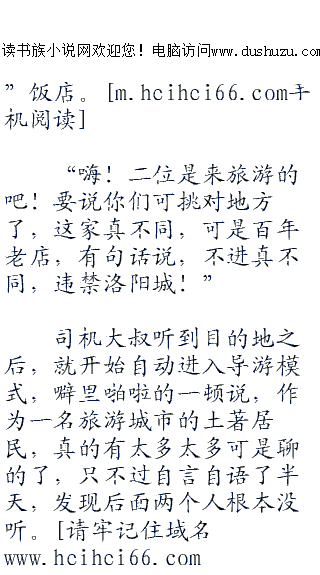 读书族小说网欢迎您！电脑访问www.dushuzu.com
”饭店。[m.hcihci66.com手
机阅读]
“嗨！二位是来旅游的
吧！要说你们可挑对地方
了，这家真不同，可是百年
老店，有句话说，不进真不
同，违禁洛阳城！”
司机大叔听到目的地之
后，就开始自动进入导游模
式，噼里啪啦的一顿说，作
为一名旅游城市的土著居
民，真的有太多太多可是聊
的了，只不过自言自语了半
天，发现后面两个人根本没
听。[请牢记住域名
www.hcihci66.com